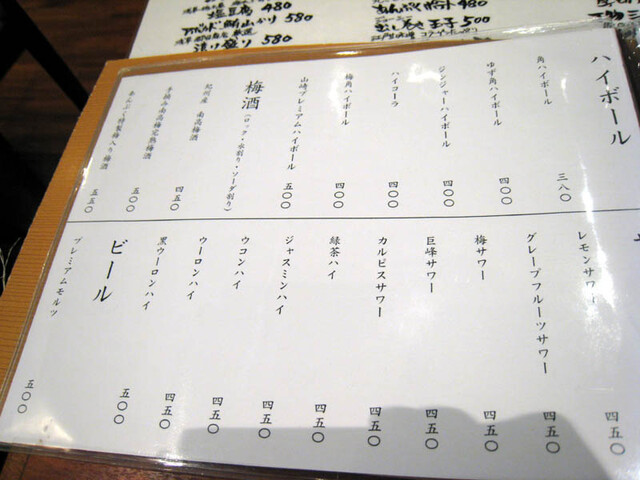 塩豆腐 480
580
漬け盛り 580
玉子 500
ハイボール
角ハイボール 三八〇
ゆず角ハイボール 四〇〇
ジンジャーハイボール 四〇〇
ハイコーラ 四〇〇
梅角ハイボール 四〇〇
山崎プレミアムハイボール 五〇〇
梅酒 (ロック・水割り・ソーダ割り)
紀州産 南高梅酒 四五〇
手摘み南高梅完熟梅酒 五〇〇
特製梅入り梅酒 五五〇
レモンサワー 四五〇
グレープフルーツサワー 四五〇
梅サワー 四五〇
巨峰サワー 四五〇
カルピスサワー 四五〇
緑茶ハイ 四五〇
ジャスミンハイ 四五〇
ウコンハイ 四五〇
ウーロンハイ 四五〇
黒ウーロンハイ 四五〇
ビール 五〇〇
プレミアムモルツ 五〇〇